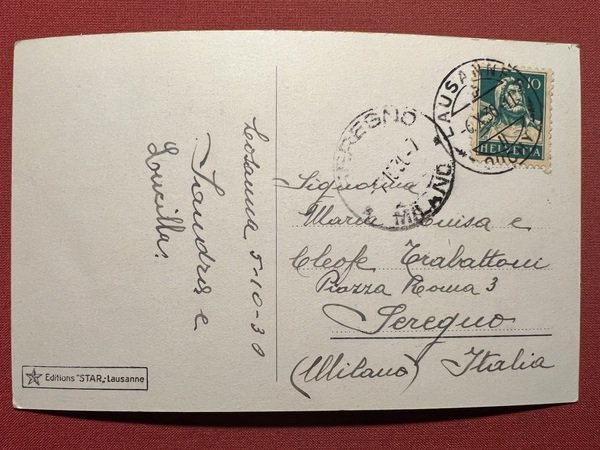 Losanna 5-10-30
Sandra e
Lucilla.
Editions "STAR„-Lausanne
SEREGNO
MILANO
LAUSANNE
10
HELVETIA
Signorina
Maria Luisa e
Cleofe Trabattoni
Piazza Roma 3
Seregno
(Milano) Italia